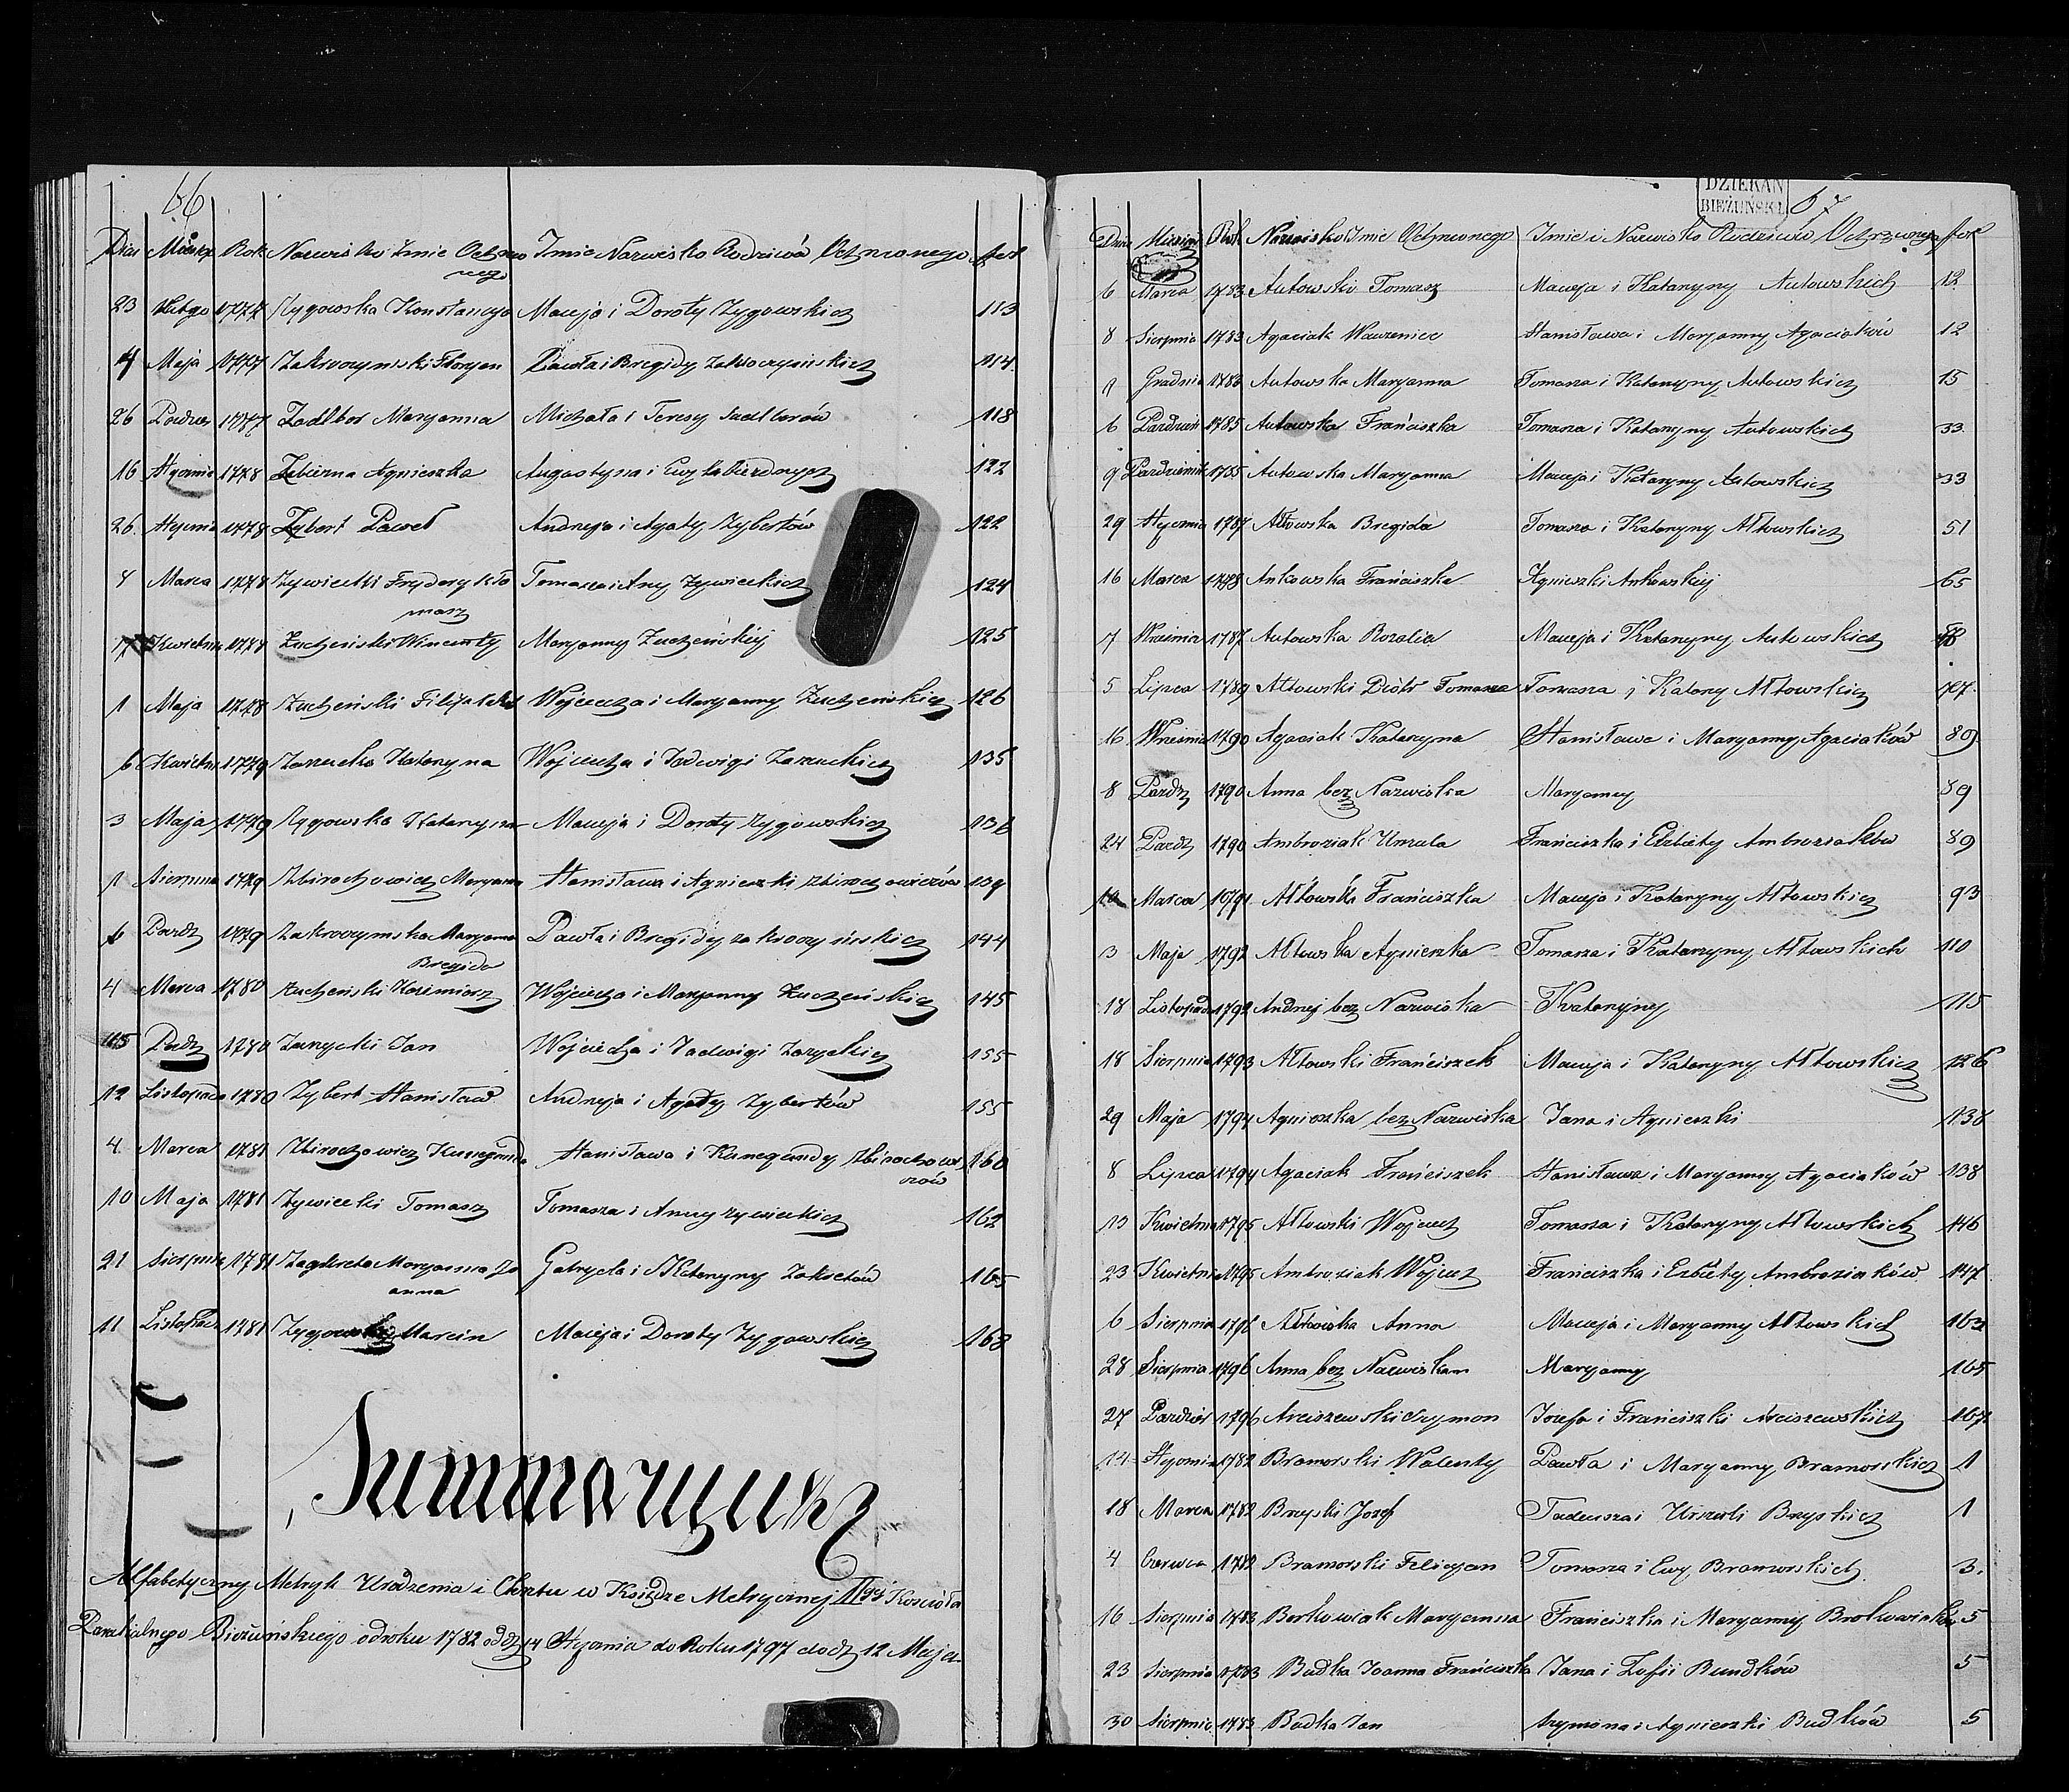 66
Dzień Miesiąc Rok Nazwisko Imie Ochrzczo Imie Nazwisko Rodziców Ochrzczonego fol
nego
23 Lutego 1777 Zygowska Konstancyja Macieja i Doroty Zygowskich 113
4 Maja 1777 Zakroczymski Floryan Pawła i Bregidy Zakroczymskich 114
26 1777 Zadlbor Maryanna Michała i Teresy Sadlborów 118
16 Stycznia 1778 Agnieszka Augustyna i Ewy 122
26 Stycznia 1778 Zybert Paweł Andrzeja i Agaty Zybertów 122
8 Marca 1778 Zywiecki Fryderyk To Tomasza i Anny Zywieckich 124
masz
17 Kwietnia 1778 Zucheński Wincenty Maryanny Zucheński 125
1 Maja 1778 Zucheński Filip Wojciecha i Maryanny Zucheńskich 126
6 Kwietnia 1779 Zarzecka Katarzyna Wojciecha i Jadwigi Zarzeckich 135
3 Maja 1779 Zygowska Katarzyna Macieja i Doroty Zygowskich 136
1 Sierpnia 1779 Zbirochowicz Maryanna Stanisława i Agnieszki Zbirochowiczów 139
6 Pazdz 1779 Zakroczymska Maryanna Pawła i Bregidy zakroczymskich 144
Bregida
4 Marca 1780 Zucheński Kazimiorz Wojciecha i Maryanny Zucheńskich 145
15 Pazdz 1780 Zarzycki Jan Wojciecha i Jadwigi Zarzyckich 155
12 Listopada 1780 Zybert Stanisław Andrzeja i Agaty Zybertów 155
4 Marca 1781 Zbirochowicz Kunegunda Stanisława i Kunegundy Zbirochowi 160
czów
10 Maja 1781 Zywiecki Tomasz Tomasza i Anny Zywieckich 162
21 Sierpnia 1781 Maryanna Jo Gabryela i Katarzyny 165
anna
11 Listopad 1781 Zygowski Marcin Macieja i Doroty Zygowskich 168
Summaryusz
Alfabetyczny Metryk Urodzenia i Chrztu w Księdze Metrycznej IIgiej Kościoła
Parafialnego Bieżuńskiego od roku 1782 od d 14 Stycznia do Roku 1797 do d 12 Maja
DZIEKAN
BIEŻUŃSKI
67
Dzień Miesiąc Rok Nazwisko Imie Ochrzczonego Imie i Nazwisko Rodziców Ochrzczonego fol
6 Marca 1783 Autowski Tomasz Macieja i Katarzyny Autowskich 12
8 Sierpnia 1783 Agaciak Wawrzeniec Stanisława i Maryanny Agaciaków 12
1 Grudnia 1783 Autowska Maryanna Tomasza i Katarzyny Autowskich 15
6 Pazdzier 1785 Autowska Frańciszka Tomasza i Katarzyny Autowskich 33
9 Pazdziernik 1785 Autowska Maryanna Macieja i Katarzyny Autowskich 33
29 Stycznia 1787 Ałtowska Bregida Tomasza i Katarzyny Ałtowskich 51
16 Marca 1778 Ankowska Frańciszka Agnieszki Ankowskiej 65
7 Wrzesnia 1787 Autowska Rozalia Macieja i Katarzyny Autowskich
5 Lipca 1789 Altowski Piotr Tomasz Tomasza i Katarzy Ałtowskich 77
16 Wrzesnia 1790 Agaciak Katarzyna Stanisława i Maryanny Agaciaków 89
8 Pazdz 1790 Anna bez Nazwiska Maryanny 89
24 Pazdz 1790 Ambroziak Urszula Franciszka i Elzbiety Ambroziaków 89
10 Marca 1791 Ałtowska Frańciszka Macieja i Katarzyny Ałtowskich 93
3 Maja 1792 Ałtowska Agnieszka Tomasza i Katarzyny Ałtowskich 110
18 Listopada 1792 Andrzej bez Nazwiska Katarzyny 115
18 Sierpnia 1793 Ałtowski Frańciszek Macieja i Katarzyny Ałtowskich 126
29 Maja 1794 Agnieszka bez Nazwiska Jana i Agnieszki 138
8 Lipca 1794 Agaciak Frańciszek Stanisława i Maryanny Agaciaków 138
13 Kwietnia 1795 Ałtowski Wojciech Tomasza i Katarzyny Ałtowskich 146
23 Kwietnia 1795 Ambroziak Wojciech Frańciszka i Elzbiety Ambroziaków 147
6 Sierpnia 1796 Ałtowska Anna Macieja i Maryanny Ałtowskich 163
28 Sierpnia 1796 Anna bez Nazwiska Maryanny 165
27 Pazdzier 1796 Arciszewski Szymon Jozefa i Franciszki Arciszewskich 167
14 Stycznia 1782 Bramorski Walenty Pawła i Maryanny Bramorskich 1
18 Marca 1782 Brzyski Jozef Tadeusza i Urszuli Brzyskich 1
4 Czerwca 1782 Bramorski Felicyan Tomasza i Ewy Bramorskich 3.
16 Sierpnia 1783 Borkowiak Maryanna Franciszka i Maryanny 5
23 Sierpnia 1783 Budka Joanna Frańciszka Jana i Zofii Bundków 5
30 Sierpnia 1783 Budka Jan Szymona i Agnieszki Budków 5